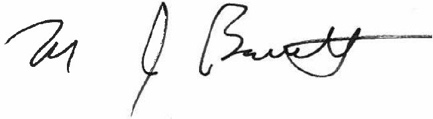 M J Barrett